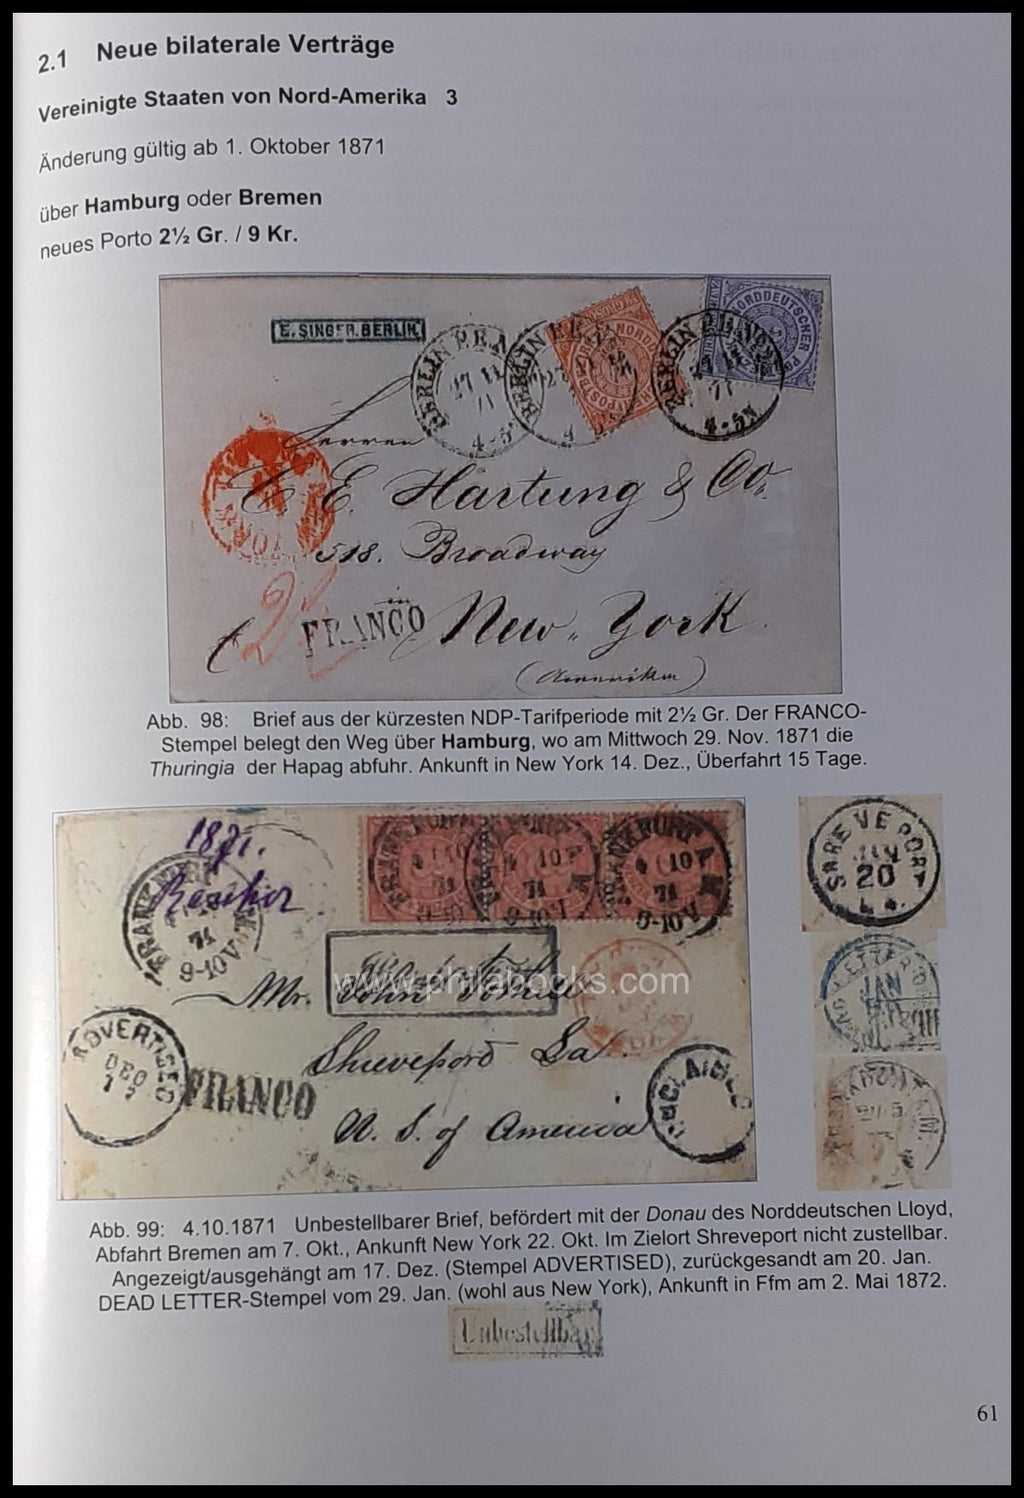 2.1 Neue bilaterale Verträge
Vereinigte Staaten von Nord-Amerika 3
Änderung gültig ab 1. Oktober 1871
über Hamburg oder Bremen
neues Porto 2½ Gr. / 9 Kr.
E. SINGER. BERLIN.
NORDDEUTSCHER
BERLIN P.E.
27 11
71
4-5N
Herren
C. E. Hartung & Co.
518. Broadway
2½
FRANCO
New-York
(Amerika)
Abb. 98: Brief aus der kürzesten NDP-Tarifperiode mit 2½ Gr. Der FRANCO-
Stempel belegt den Weg über Hamburg, wo am Mittwoch 29. Nov. 1871 die
Thuringia der Hapag abfuhr. Ankunft in New York 14. Dez., Überfahrt 15 Tage.
1871.
FRANKFURT A.M.
4 10
71
9-10V.
SHREVEPORT
JAN
20
LA.
www.philabooks.com
Mr. John
Shreveport La.
ADVERTISED
DEC
17
FRANCO
UNCLAIMED
U. S. of America
DEAD LETTER
JAN
Abb. 99: 4.10.1871 Unbestellbarer Brief, befördert mit der Donau des Norddeutschen Lloyd,
Abfahrt Bremen am 7. Okt., Ankunft New York 22. Okt. Im Zielort Shreveport nicht zustellbar.
Angezeigt/ausgehängt am 17. Dez. (Stempel ADVERTISED), zurückgesandt am 20. Jan.
DEAD LETTER-Stempel vom 29. Jan. (wohl aus New York), Ankunft in Ffm am 2. Mai 1872.
Unbestellbar
61